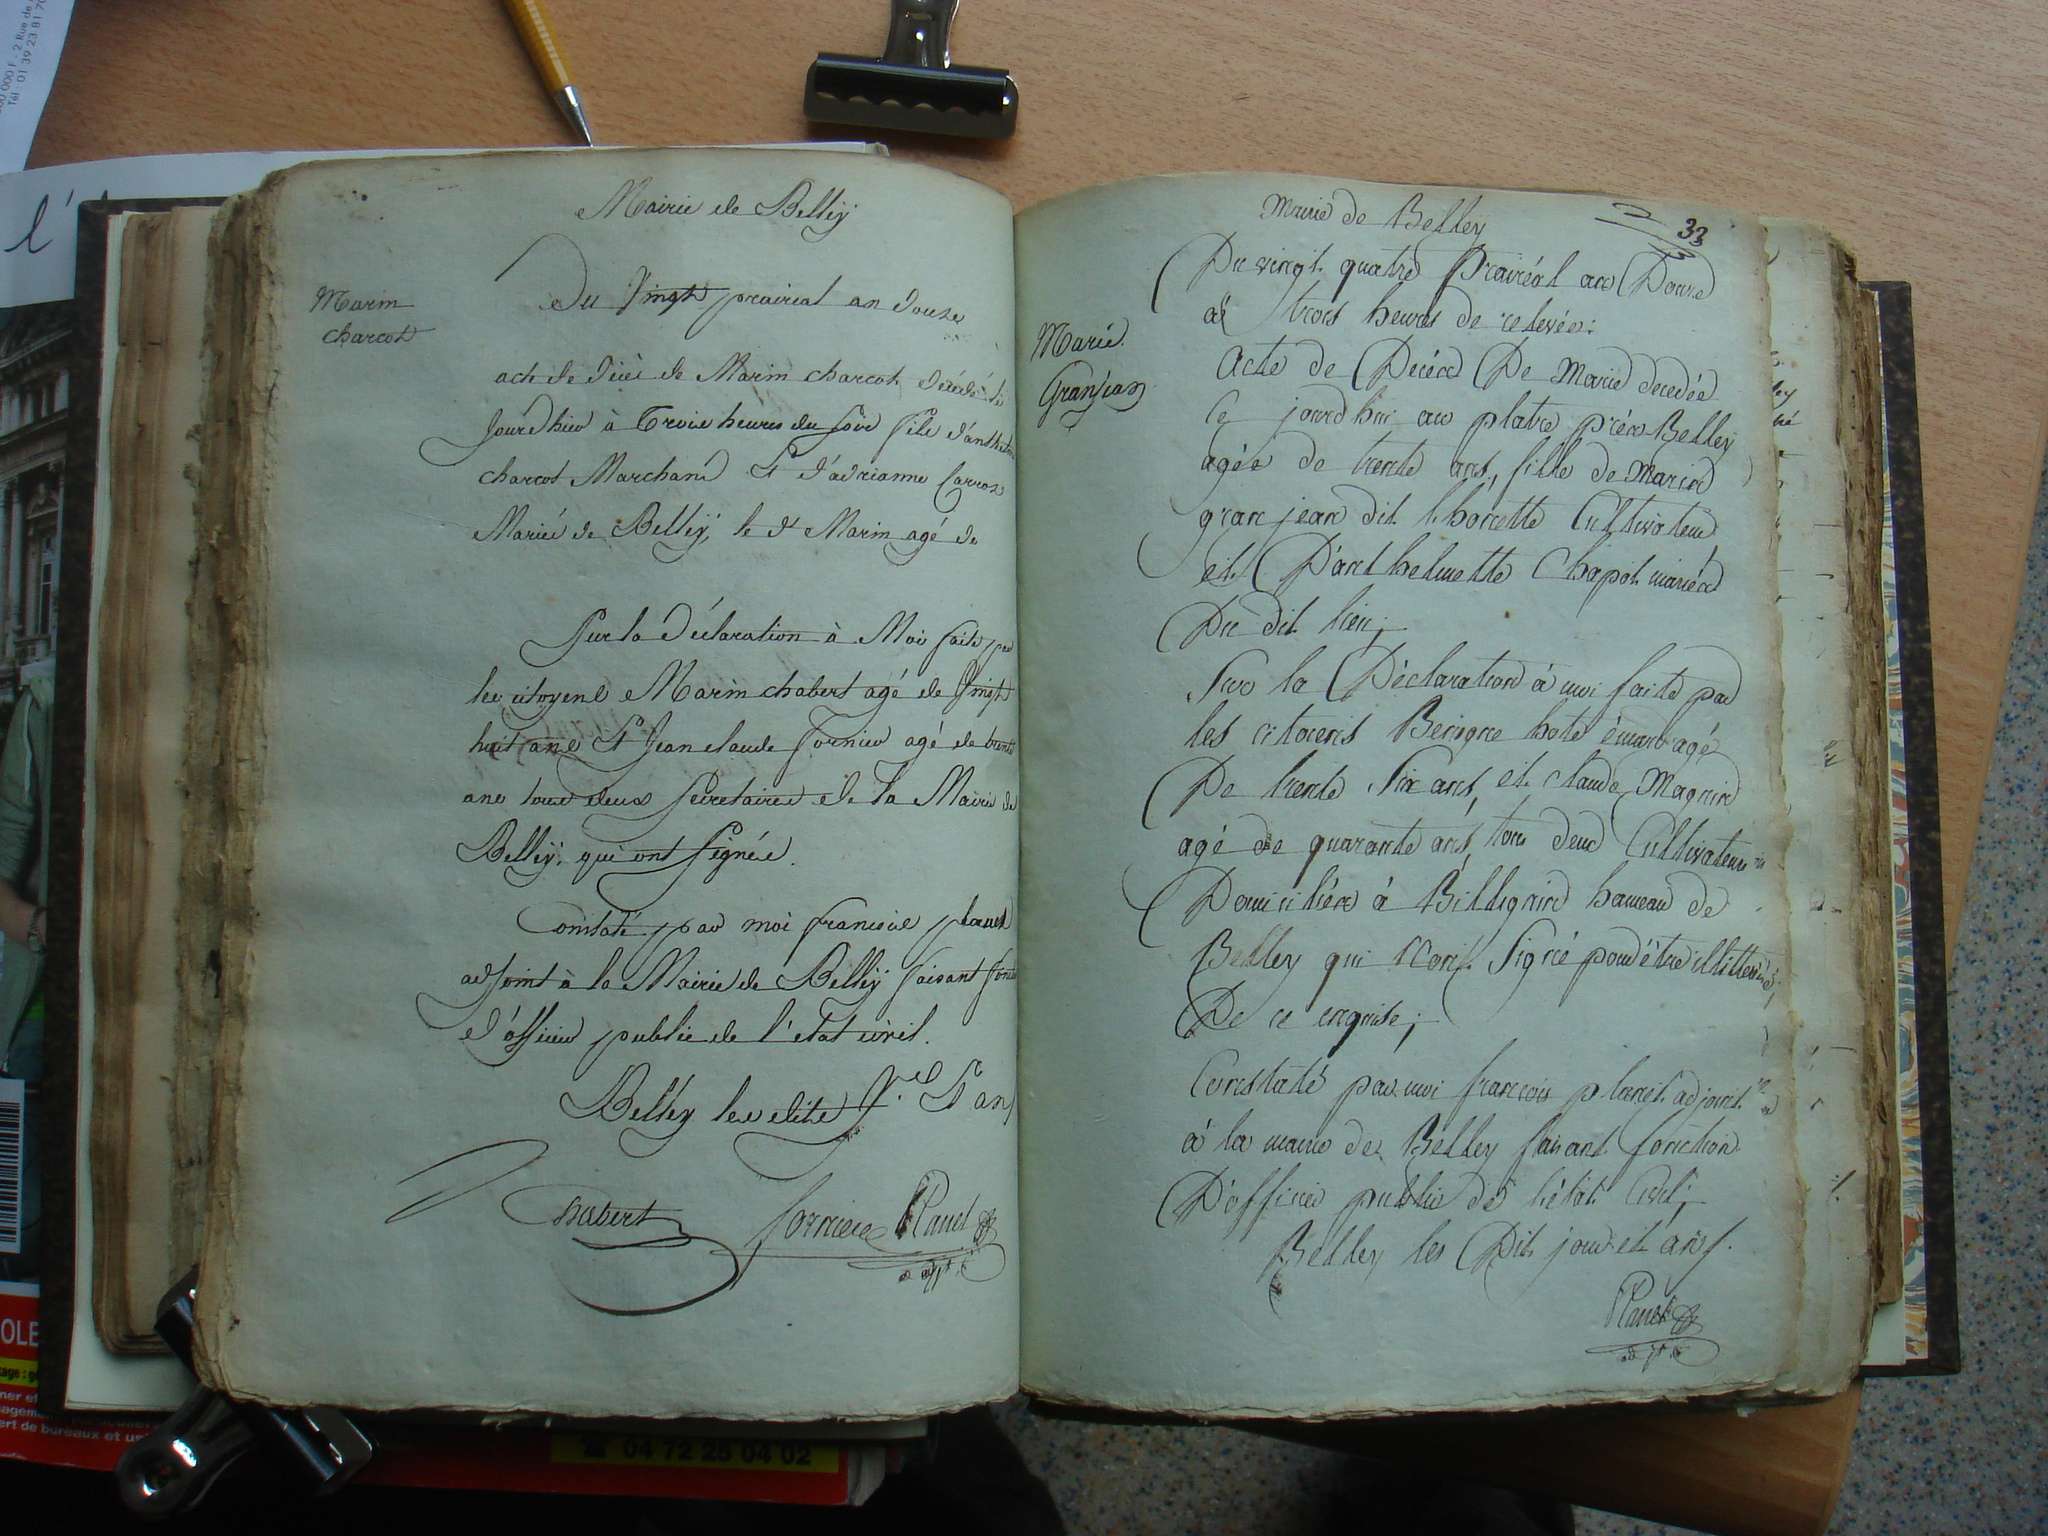 Mairie de Belleÿ
Marin
charcot
Du Vingt prairial an douze
acte de décè de Marin charcot décédé le
Jourd'hier à Trois heures du soir fils d'anthelme
charcot Marchand Et d'adrianne Carron
Mariés de Belleÿ, le dt Marin agé de
Sur la Déclaration à Moi faite par
les citoyens Marin chabert agé de Vingt
huit ans Et Jean claude fornier agé de trente
ans tous deux Secretaires de la Mairie de
Belleÿ, qui ont signés.
Constaté par moi françois planet
adjoint à la Mairie de Belleÿ faisant fonction
d'officier public de l'etat civil.
Belley les dits Jr. Et an
Chabert fornier Planet
adjt
Mairie de Belley
33
Marie
Granjean
Du vingt quatre Prairéal an Douze
à trois heures de relevée:
Acte de Décéd De Marie decedée
ce jourd'hui au platre prés Belley
agée de trente ans, fille de Marin
granjean dit lhorette Cultivateur
et D'anthelmette Chapot mariés
Du dit lieu;
Sur la Déclaration à moi faite par
les citoiens Benigne hote émard agé
De trente Six ans, et claude Magnin
agé de quarante ans, tous deux Cultivateurs
Domiciliés à Billignin hameau de
Belley qui n'ont Signé pour être illitterés,
De ce enquise;
Constaté par moi françois planet adjoint
à la mairie de Belley faisant fonction
D'officier public de l'état Civil;
Belley les Dit jour et an
Planet
adjt
000 F - 2 Rue de
Tél : 01 39 23 81 70
l'
OLE
bert de bureaux et
☎ 04 72 25 04 02